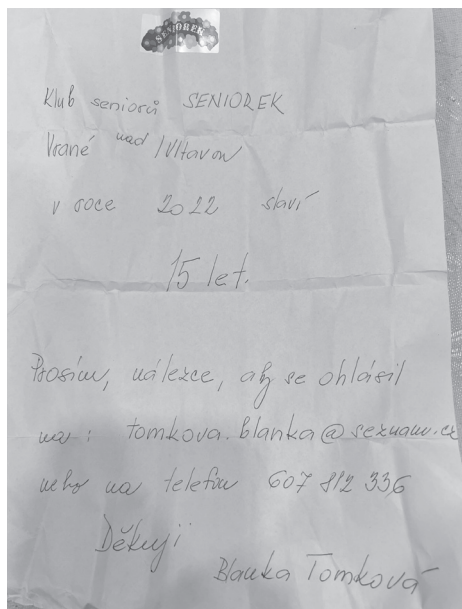 SENIOREK
Klub seniorů SENIOREK
Vrané nad /Vltavou
v roce 2022 slaví
15 let.
Prosím, nálezce, aby se ohlásil
na: tomkova.blanka@seznam.cz
nebo na telefon 607 812 336
Děkuji
Blanka Tomková